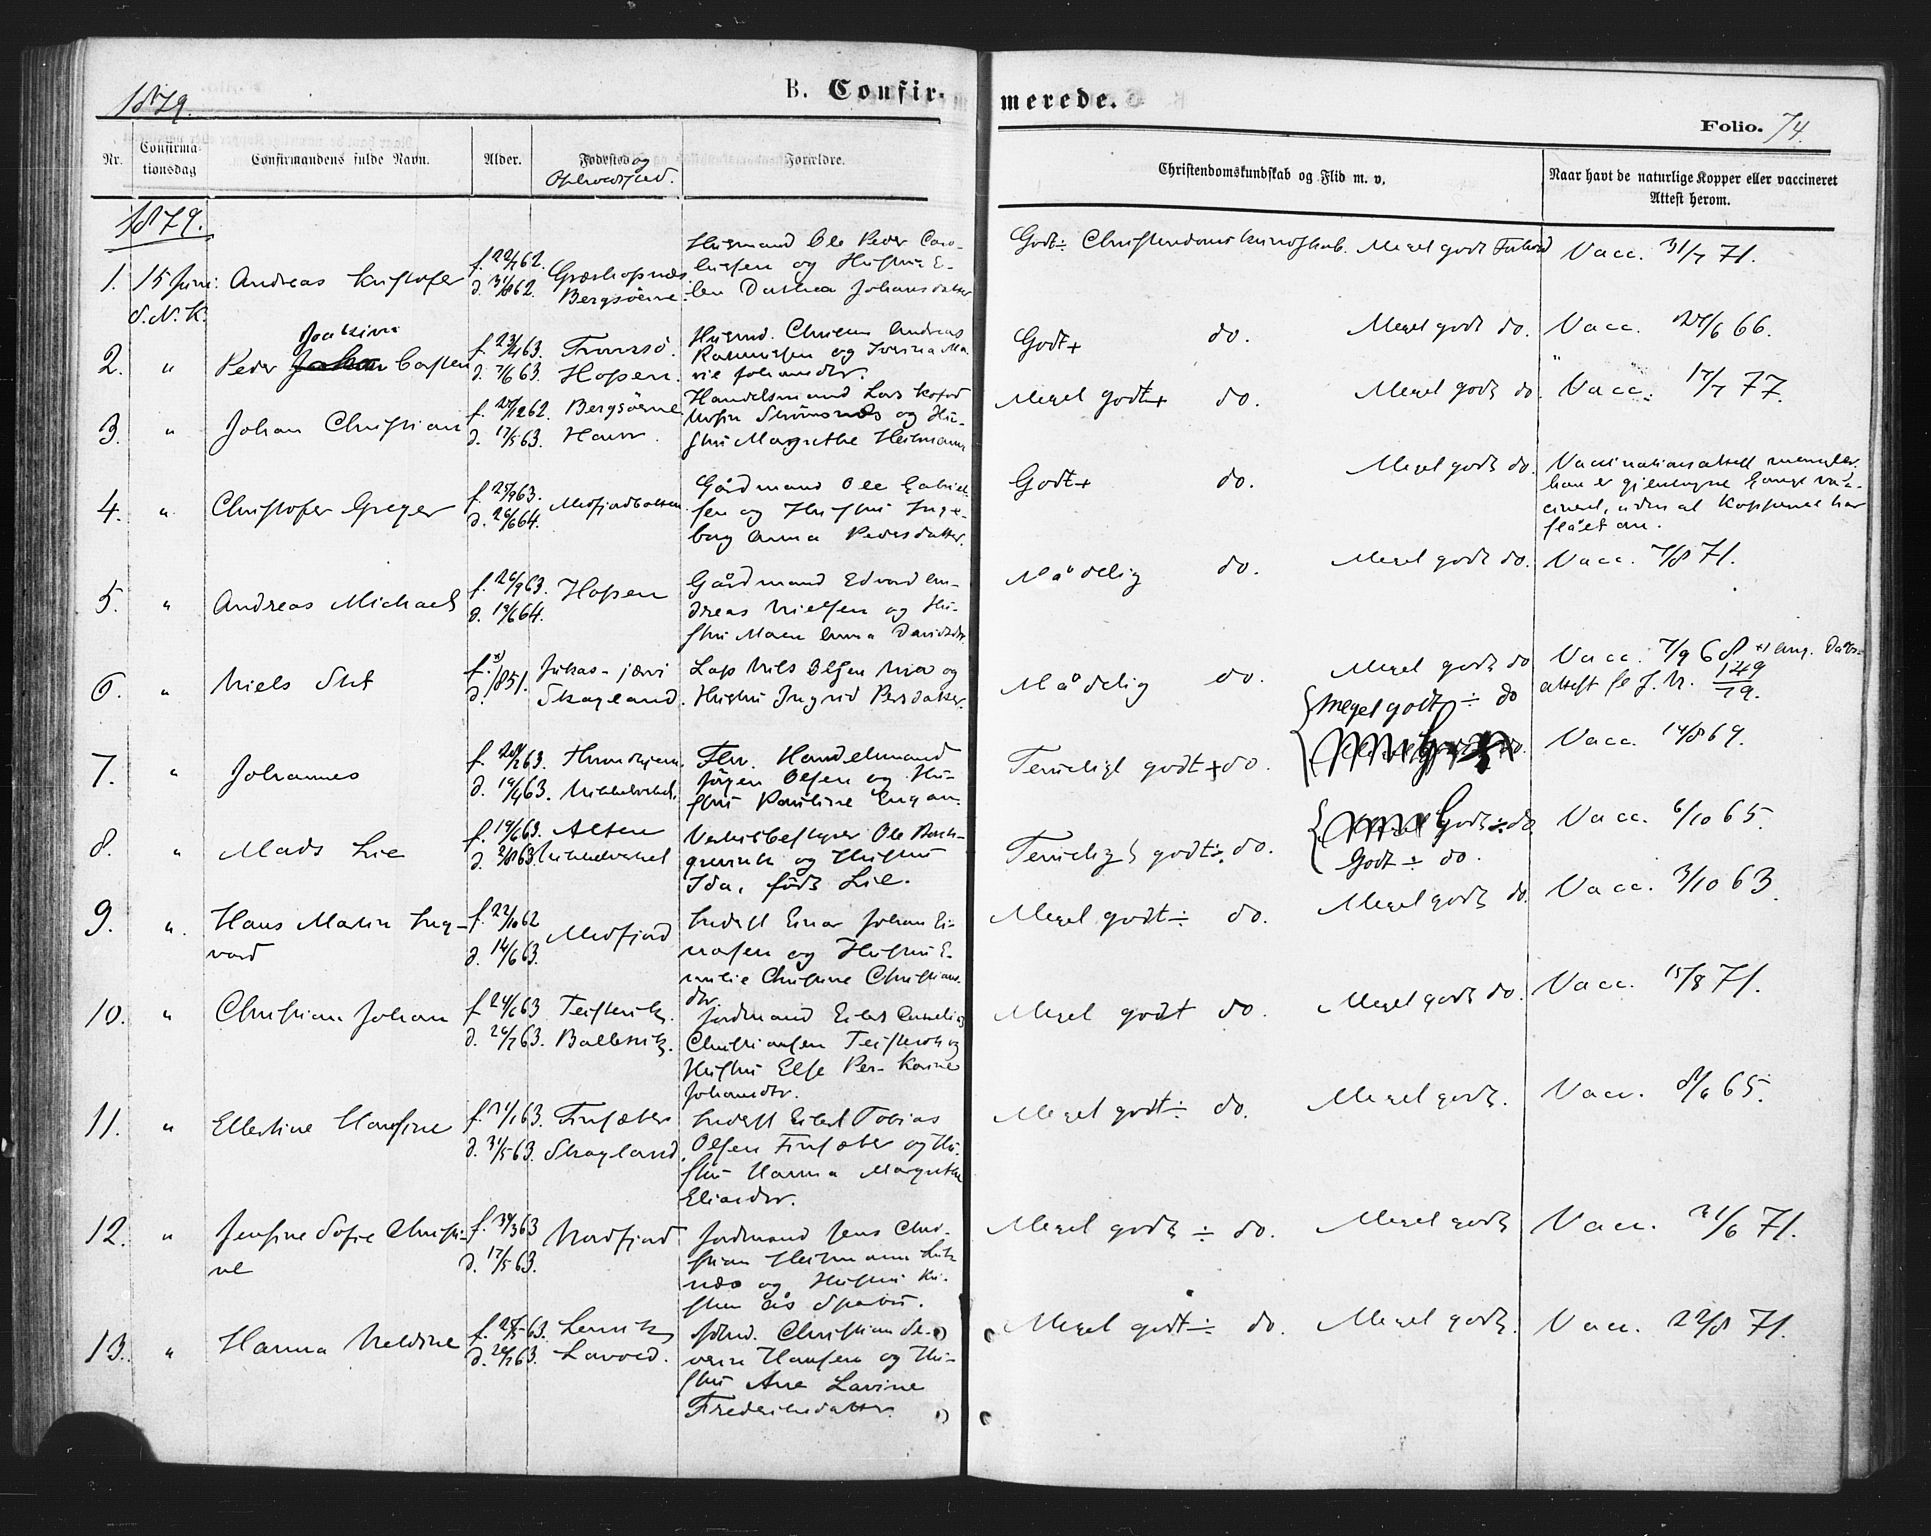 1879.
B. Confir-
merede.
Folio. 74.
Nr.
Confirma-
tionsdag
Confirmandens fulde Navn.
Alder.
Fødested og
Opholdssted.
Forældre.
Christendomskundskab og Flid m. v.
Naar havt de naturlige Kopper eller vaccineret
Attest herom.
1879.
1. 15 Juni Andreas Kristofer
S. N. K.
f. 22/7 62.
d. 31/8 62.
Græshopnæs
Bergsøerne
Husmand Ole Peder Caro-
liussen og Hustru E-
len Dorthea Johansdatter
Godt ÷ Christendomskundskab. Meget godt Forhold
Vacc. 31/7 71.
2. " Peder Joakim Casten
f. 23/4 63.
d. 7/6 63.
Tromsø.
Hopen.
Husmd. Christen Andreas
Rasmussen og
rie Johansdtr.
Godt + do. Meget godt do.
Vacc. 24/6 66.
3. " Johan Christian
f. 12 62.
d. 17/5 63.
Bergsøerne
Havn.
Handelsmand Lars
Strømsnes og Hu-
stru Margrethe Heitmann
Meget godt + do. Meget godt do.
Vacc. 17/7 77.
4. " Christofer Greger
f. 25/9 63.
d. 26/6 64.
Medfjordbotten
Gårdmand Ole Gabriel-
sen og Hustru Inge-
borg Anna Pedersdatter.
Godt + do. Meget godt do.
Vaccinationsattest mangler.
han er gjentagne Gange vac-
cineret, uden at Kopperne har
slået an.
5. " Andreas Michael
f. 26/9 63.
d. 19/6 64.
Hopen
Gårdmand Edvard An-
dreas Nielsen og Hu-
stru Maren Anna Davidsdtr
Mådelig do. Meget godt do.
Vacc. 7/8 71.
6. " Niels
f. x)
d. 1851.
Jukas-jærvi
Skagland.
Lap Nils Olsen og
Hustru Ingrid Persdatter.
Mådelig do. Meget godt do
Vacc. 7/9 68 x) ang. Dåbs-
attest se J. N. 149/79.
7. " Johannes
f. 63.
d. 19/4 63.
Nikkelverket.
Fhv. Handelsmand
Jørgen Olsen og Hu-
stru Pauline
Temmeligt godt + do.
Meget godt ÷ do
Vacc. 14/8 69.
8. " Mads Lie
f. 19/6 63.
d. 8 63.
Alten
Nikkelverket
Verksbestyrer Ole
og Hustru
Ida, født Lie.
Temmeligt godt ÷ do.
Godt ÷ do.
Vacc. 6/10 65.
9. " Hans Martin Ing-
vard
f. 22/10 62
d. 14/6 63.
Medfjord
Inderst Einar Johan Ei-
narsen og Hustru E-
milie Christine Christians-
dtr.
Meget godt ÷ do. Meget godt do.
Vacc. 3/10 63.
10. " Christian Johan
f. 24/6 63
d. 26/7 63.
Teistevik.
Ballesvik.
Jordmand Eilert Cornelius
Christiansen Teistevik og
Hustru Else Per- Karine
Johansdtr.
Meget godt do. Meget godt do.
Vacc. 15/8 71.
11. " Ellertine Hansine
f. 63.
d. 31/5 63.
Finsæter
Skagland
Inderst Eilert Tobias
Olsen Finsæter og Hu-
stru Hanna Margrethe
Eliasdtr.
Meget godt ÷ do. Meget godt.
Vacc. 8/6 65.
12. " Jensine Sofie Christi-
ne
f. 3 63
d. 17/5 63.
Nordfjord
Jordmand Jens Chri-
stian Heitmann
og Hustru Kir-
sten
Meget godt ÷ do. Meget godt
Vacc. 21/6 71.
13. " Hanna Neldine
f. 63.
d. 26/7 63.
Lervik
Lavold.
Jdmd. Christian Se-
verin Hansen og Hu-
stru Ane Lavine
Frederiksdatter.
Meget godt ÷ do. Meget godt.
Vacc. 22/8 71.